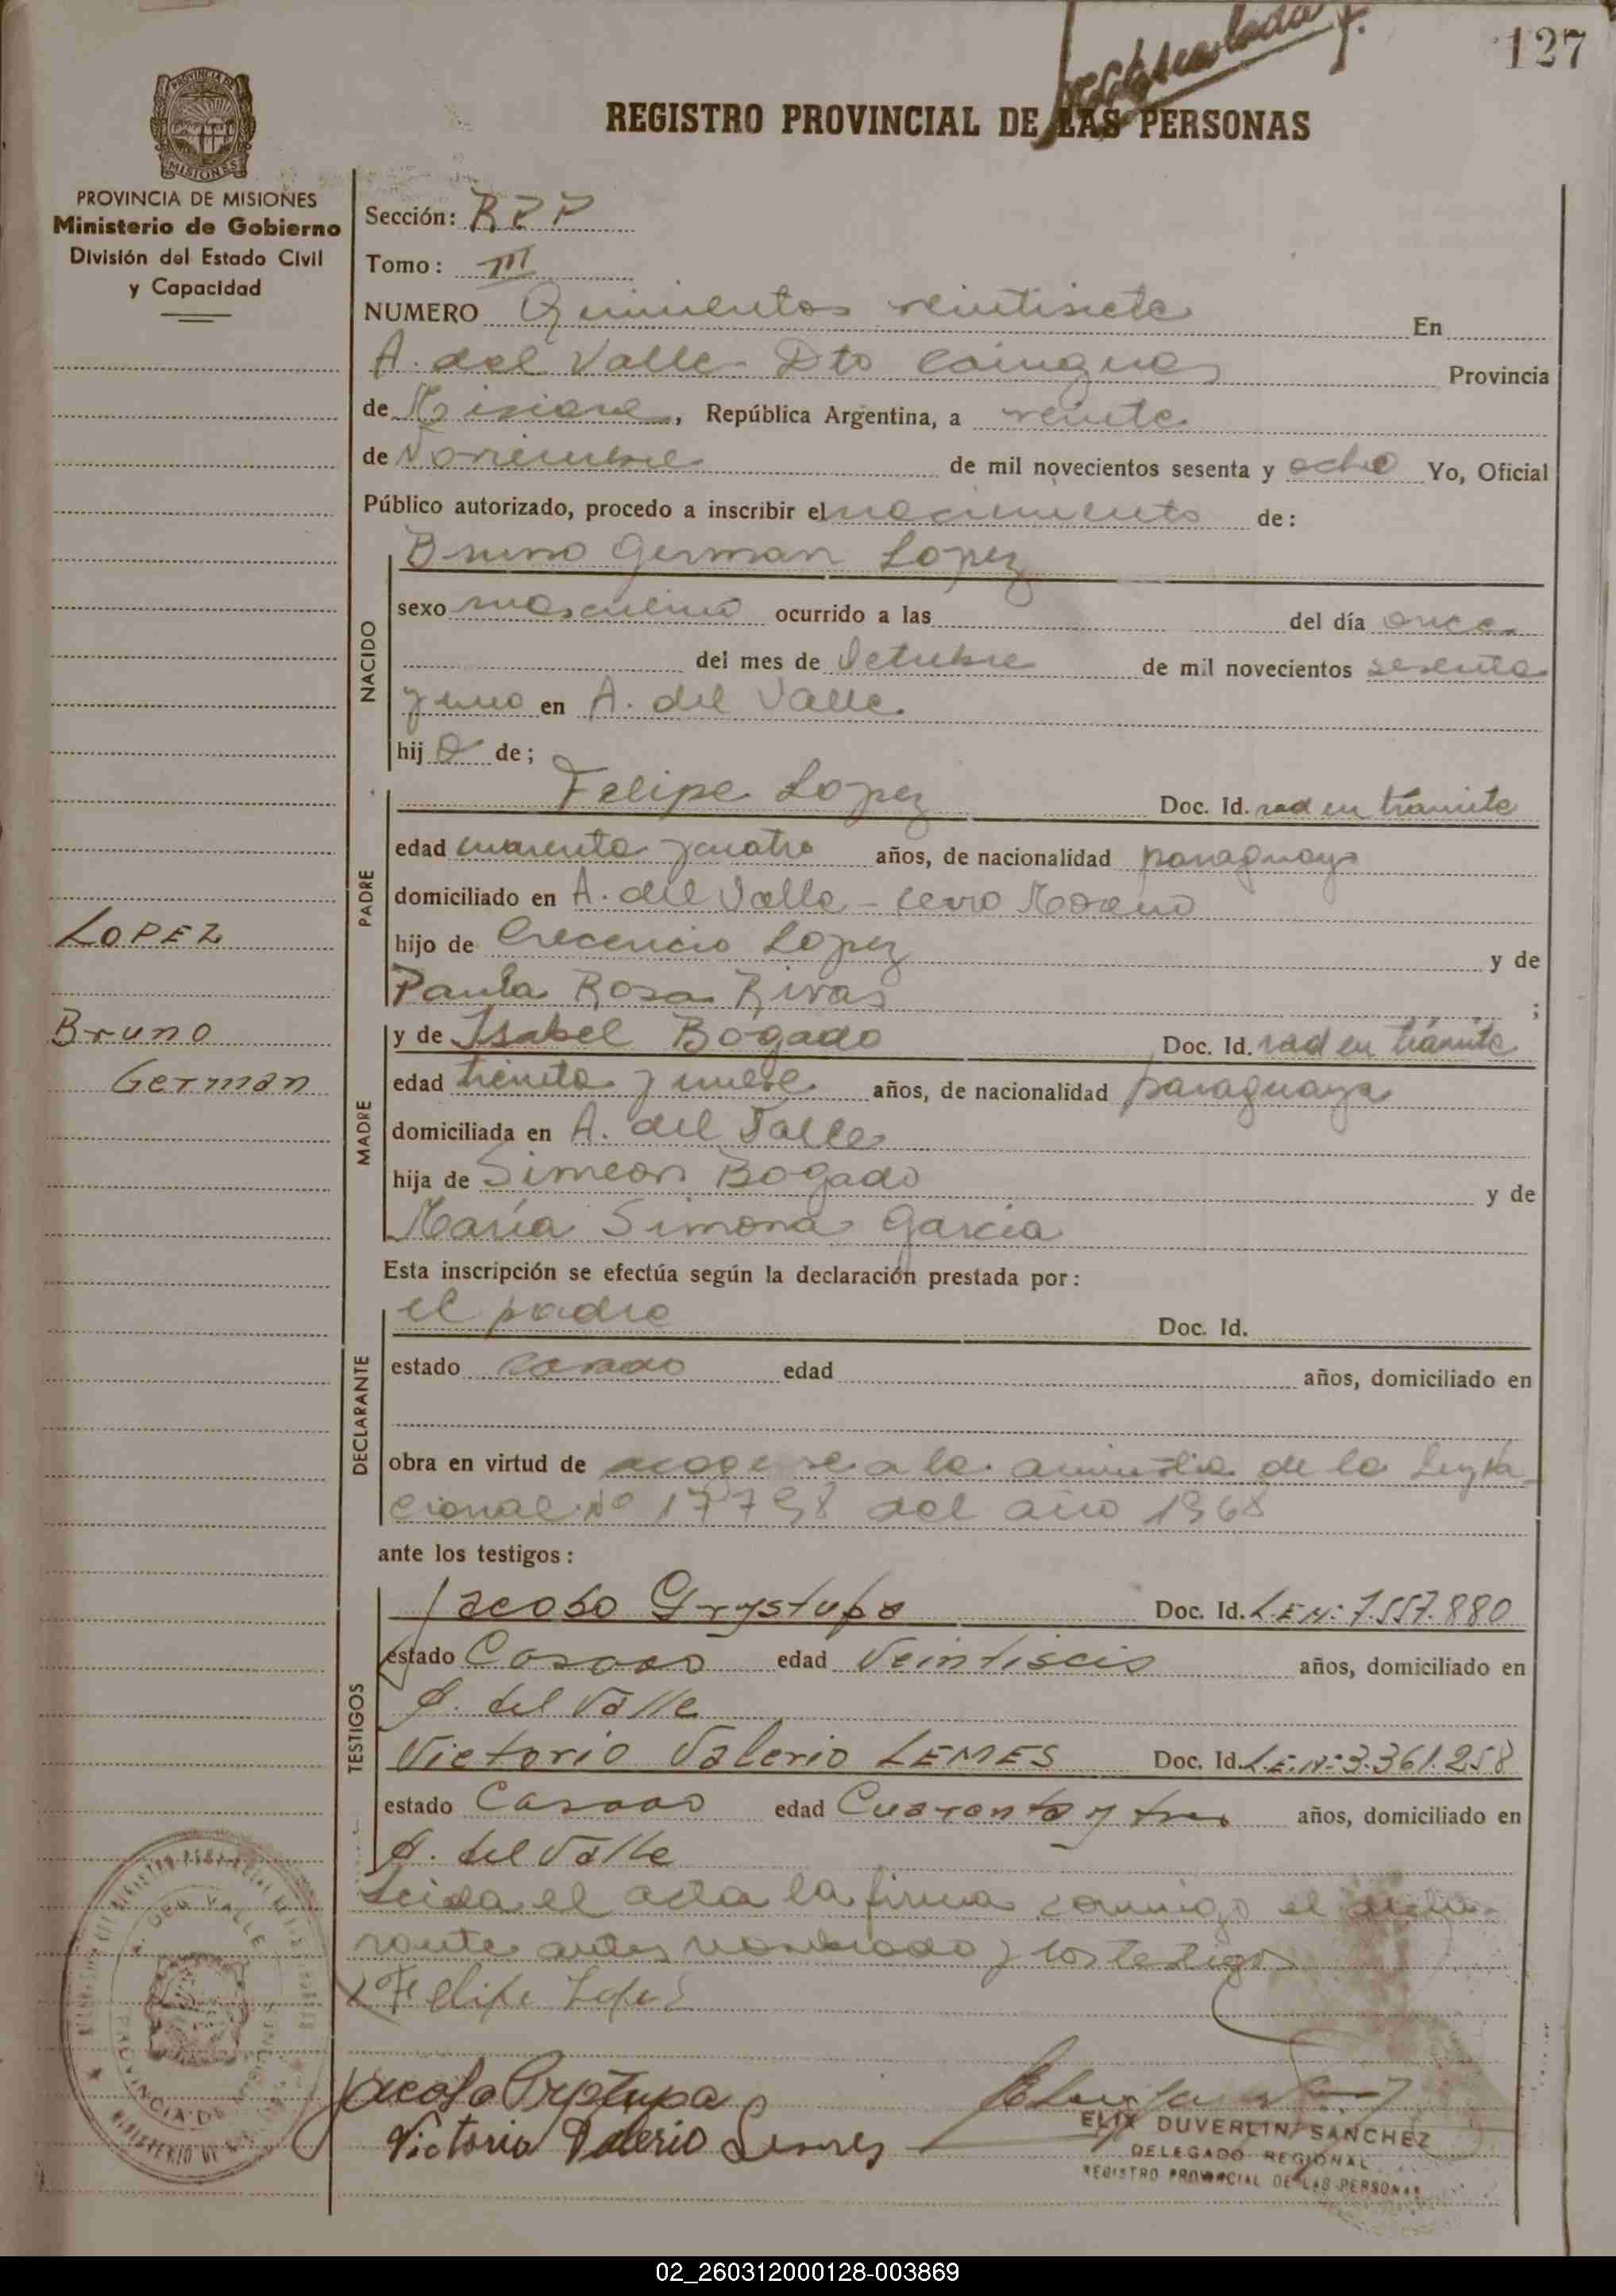 127
REGISTRO PROVINCIAL DE LAS PERSONAS
PROVINCIA DE MISIONES
Ministerio de Gobierno
División del Estado Civil
y Capacidad
Sección: RPP
Tomo: III
NUMERO Quinientos veintisiete En
A. del Valle - Dto Cainguas Provincia
de Misiones, República Argentina, a veinte
de Noviembre de mil novecientos sesenta y ocho Yo, Oficial
Público autorizado, procedo a inscribir el nacimiento de:
Bruno German Lopez
NACIDO
sexo masculino ocurrido a las del día once
del mes de Octubre de mil novecientos sesenta
y uno en A. del Valle
hijo de;
PADRE
Felipe Lopez Doc. Id. rad en trámite
edad cuarenta y cuatro años, de nacionalidad paraguaya
domiciliado en A. del Valle - Cerro Moreno
hijo de Crecencio Lopez y de
Paula Rosa Rivas ;
LOPEZ
Bruno
German
MADRE
y de Isabel Bogado Doc. Id. rad en trámite
edad treinta y nueve años, de nacionalidad paraguaya
domiciliada en A. del Valle
hija de Simeon Bogado y de
María Simona Garcia
Esta inscripción se efectúa según la declaración prestada por:
DECLARANTE
el padre Doc. Id.
estado casado edad años, domiciliado en
obra en virtud de acogerse a la amnistia de la Ley Na-
cional Nº 17798 del año 1968
ante los testigos:
TESTIGOS
Jacobo Prystupa Doc. Id. L.E.Nº 7.557.880
estado Casado edad Veintiseis años, domiciliado en
A. del Valle
Victorio Valerio LEMES Doc. Id. L.E.Nº 3.361.258
estado Casado edad Cuarenta y tres años, domiciliado en
A. del Valle
Leida el acta la firma conmigo el decla-
rante antes nombrado y los testigos
Felipe Lopez
Jacobo Prystupa
Victorio Valerio Lemes
ELIX DUVERLIN SANCHEZ
DELEGADO REGIONAL
REGISTRO PROVINCIAL DE LAS PERSONAS
02_260312000128-003869